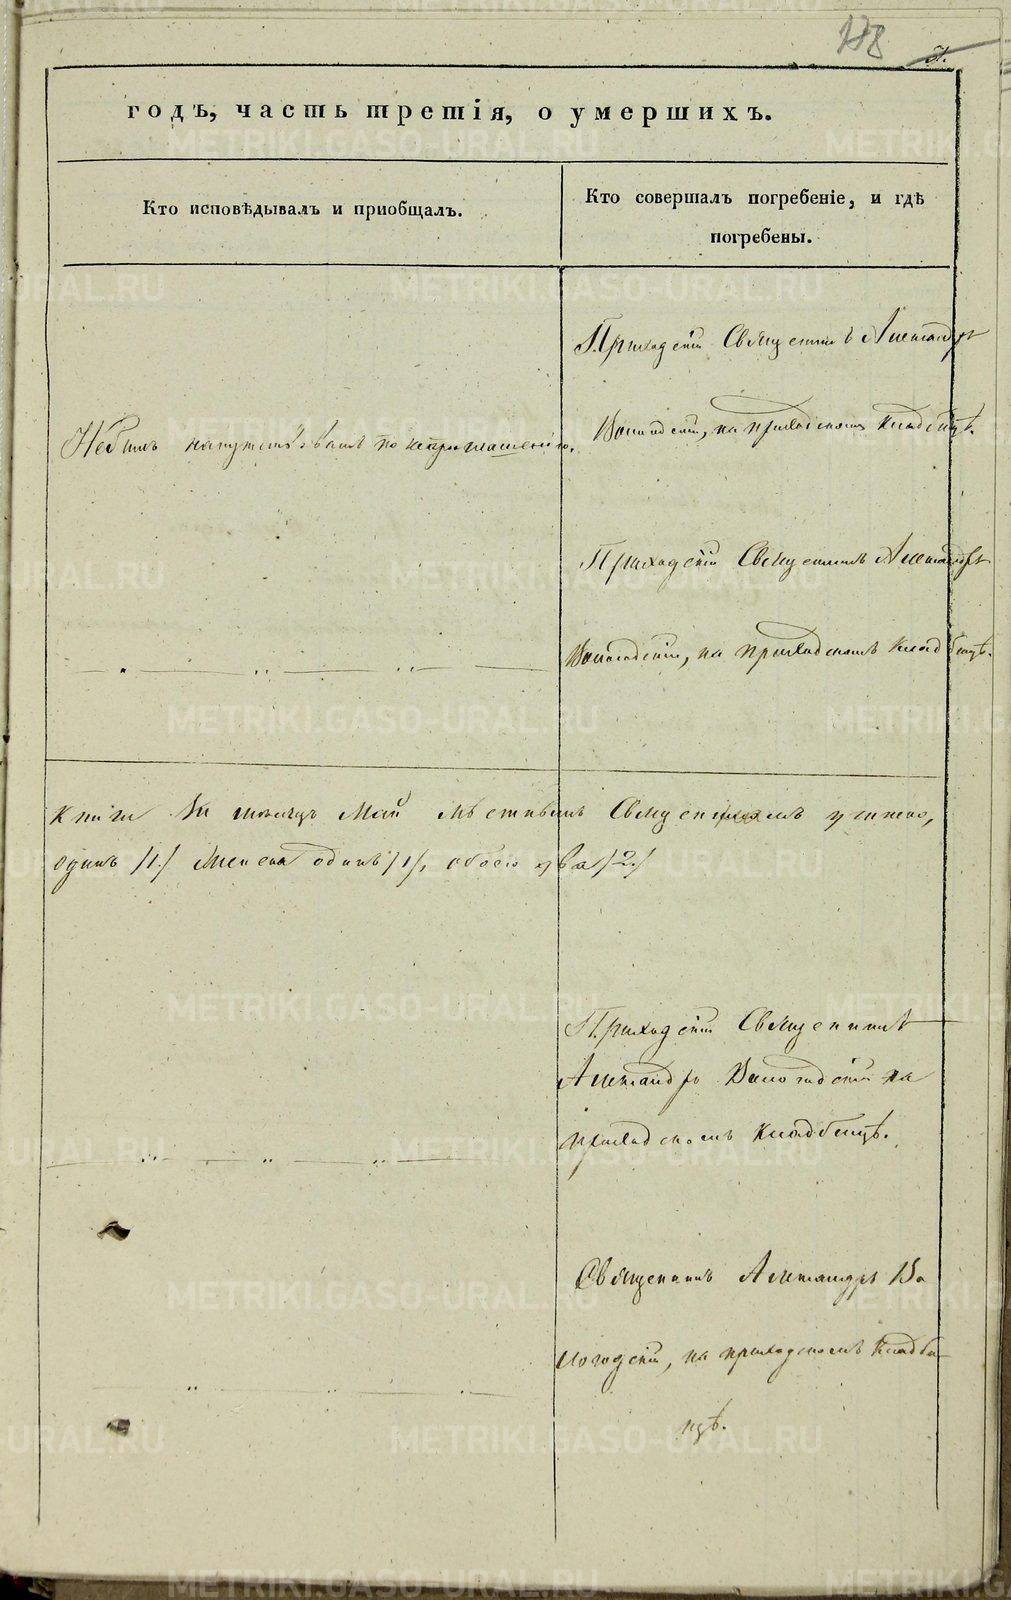 118
годъ, часть третія, о умершихъ.
Кто исповѣдывалъ и приобщалъ.
Кто совершалъ погребеніе, и гдѣ
погребены.
Приходскій Священникъ Александръ
Небылъ напутствованъ по неприглашенію.
Вологодскій, на приходскомъ кладбищѣ.
Приходскій Священникъ Александръ
Вологодскій, на приходскомъ кладбищѣ.
книги за мѣсяцъ Май мѣстнымъ Священникомъ учтено,
одинъ /1/ Женска одинъ /1/, обоего два /2/
Приходскій Священникъ
Александръ Вологодскій на
приходскомъ кладбищѣ.
Священникъ Александръ Во
логодскій, на приходскомъ кладби
щѣ.
METRIKI.GASO-URAL.RU